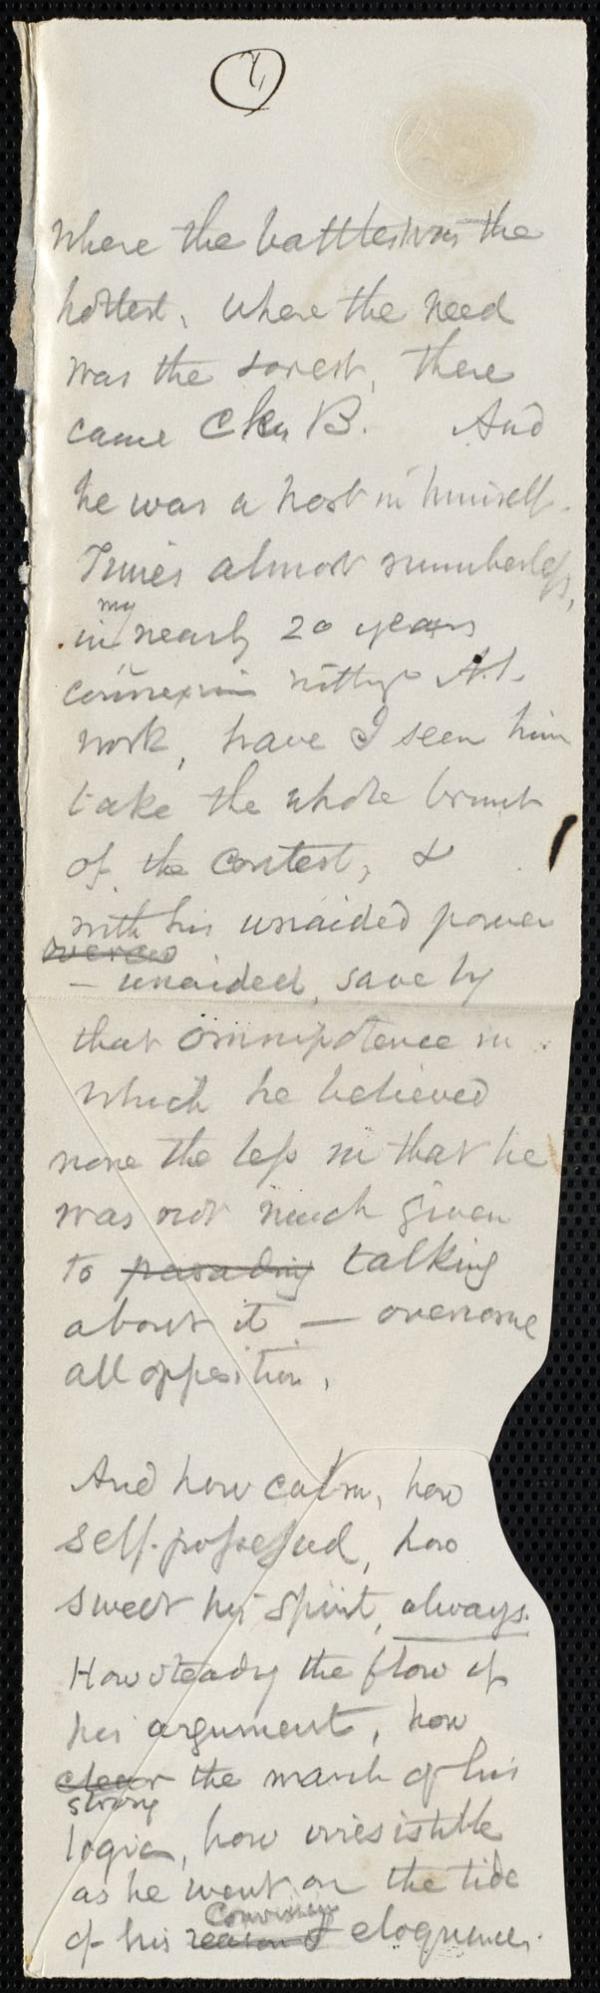 where the battle was the
hottest, where the need
was the sorest, there
came Chs B. And
he was a host in himself.
Times almost numberless,
my
in nearly 20 years
connexion with A.S.
work, have I seen him
take the whole brunt
of the contest, &
with his unaided power
overco
— unaided, save by
that omnipotence in
which he believed
none the less in that he
was not much given
to parading talking
about it — overcome
all opposition.
And how calm, how
self-possessed, how
sweet his spirit, always.
How steady the flow of
his argument, how
clear the march of his
strong
logic, how irresistible
as he went on the tide
Convincing
of his reason & eloquence.